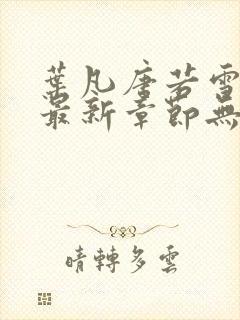 葉凡唐若雪
最新章節無
晴轉多雲